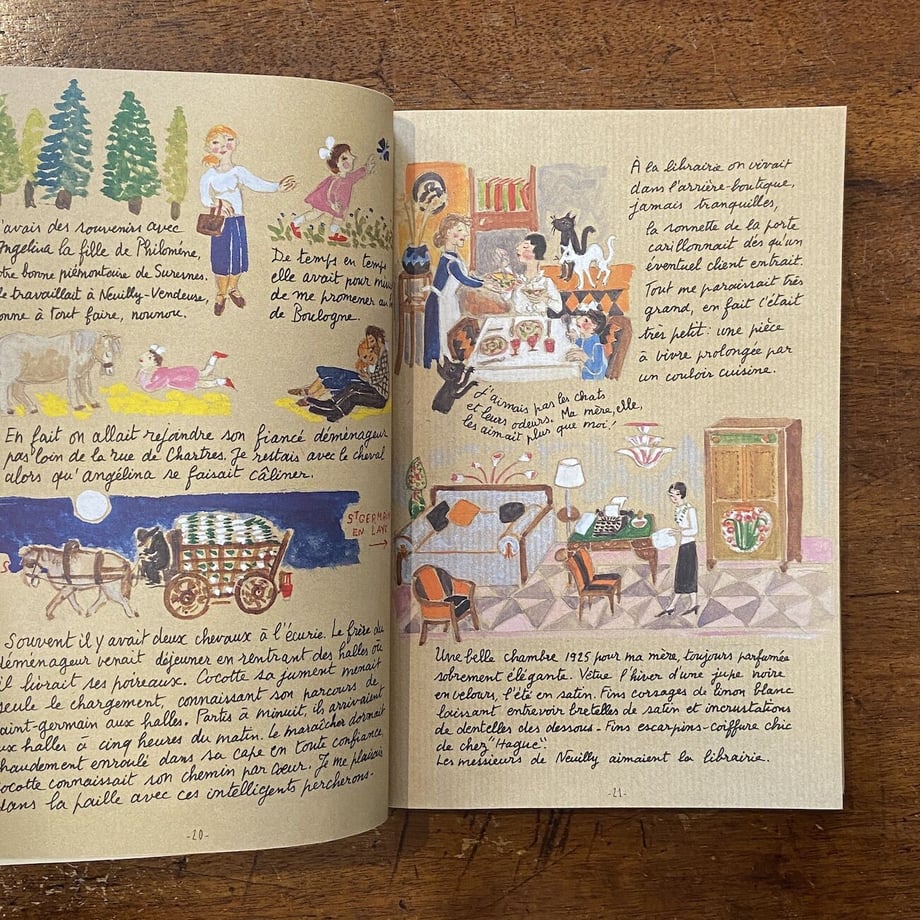 'avais des souvenirs avec
Angelina la fille de Philomène,
otre bonne piémontaise de Suresnes.
le travaillait à Neuilly-Vendeuse,
onne à tout faire, nounou.
De temps en temps
elle avait pour
de me promener au
de Boulogne.
En fait on allait rejoindre son fiancé déménageur
pas loin de la rue de Chartres. Je restais avec le cheval
alors qu'angélina se faisait câliner.
ST GERMAIN
EN LAYE
Souvent il y avait deux chevaux à l'écurie. Le frère du
déménageur venait déjeuner en rentrant des halles où
il livrait ses poireaux. Cocotte sa jument menait
seule le chargement, connaissant son parcours de
aint-germain aux halles. Partis à minuit, ils arrivaient
ux halles à cinq heures du matin. Le maraîcher dormait
haudement enroulé dans sa cape en toute confiance,
ocotte connaissait son chemin par cœur. Je me plaisais
dans la paille avec ces intelligents percherons-
-20-
À la librairie on vivait
dans l'arrière-boutique,
jamais tranquilles,
la sonnette de la porte
carillonnait dès qu'un
éventuel client entrait.
Tout me paraissait très
grand, en fait c'était
très petit: une pièce
à vivre prolongée par
un couloir cuisine.
j'aimais pas les chats
et leurs odeurs. Ma mère, elle,
les aimait plus que moi!
Une belle chambre 1925 pour ma mère, toujours parfumée
sobrement élégante. Vêtue l'hiver d'une jupe noire
en velours, l'été en satin. Fins corsages de linon blanc
laissant entrevoir bretelles de satin et incrustations
de dentelles des dessous - Fins escarpins-coiffure chic
de chez "Hague".
Les messieurs de Neuilly aimaient la librairie.
-21-